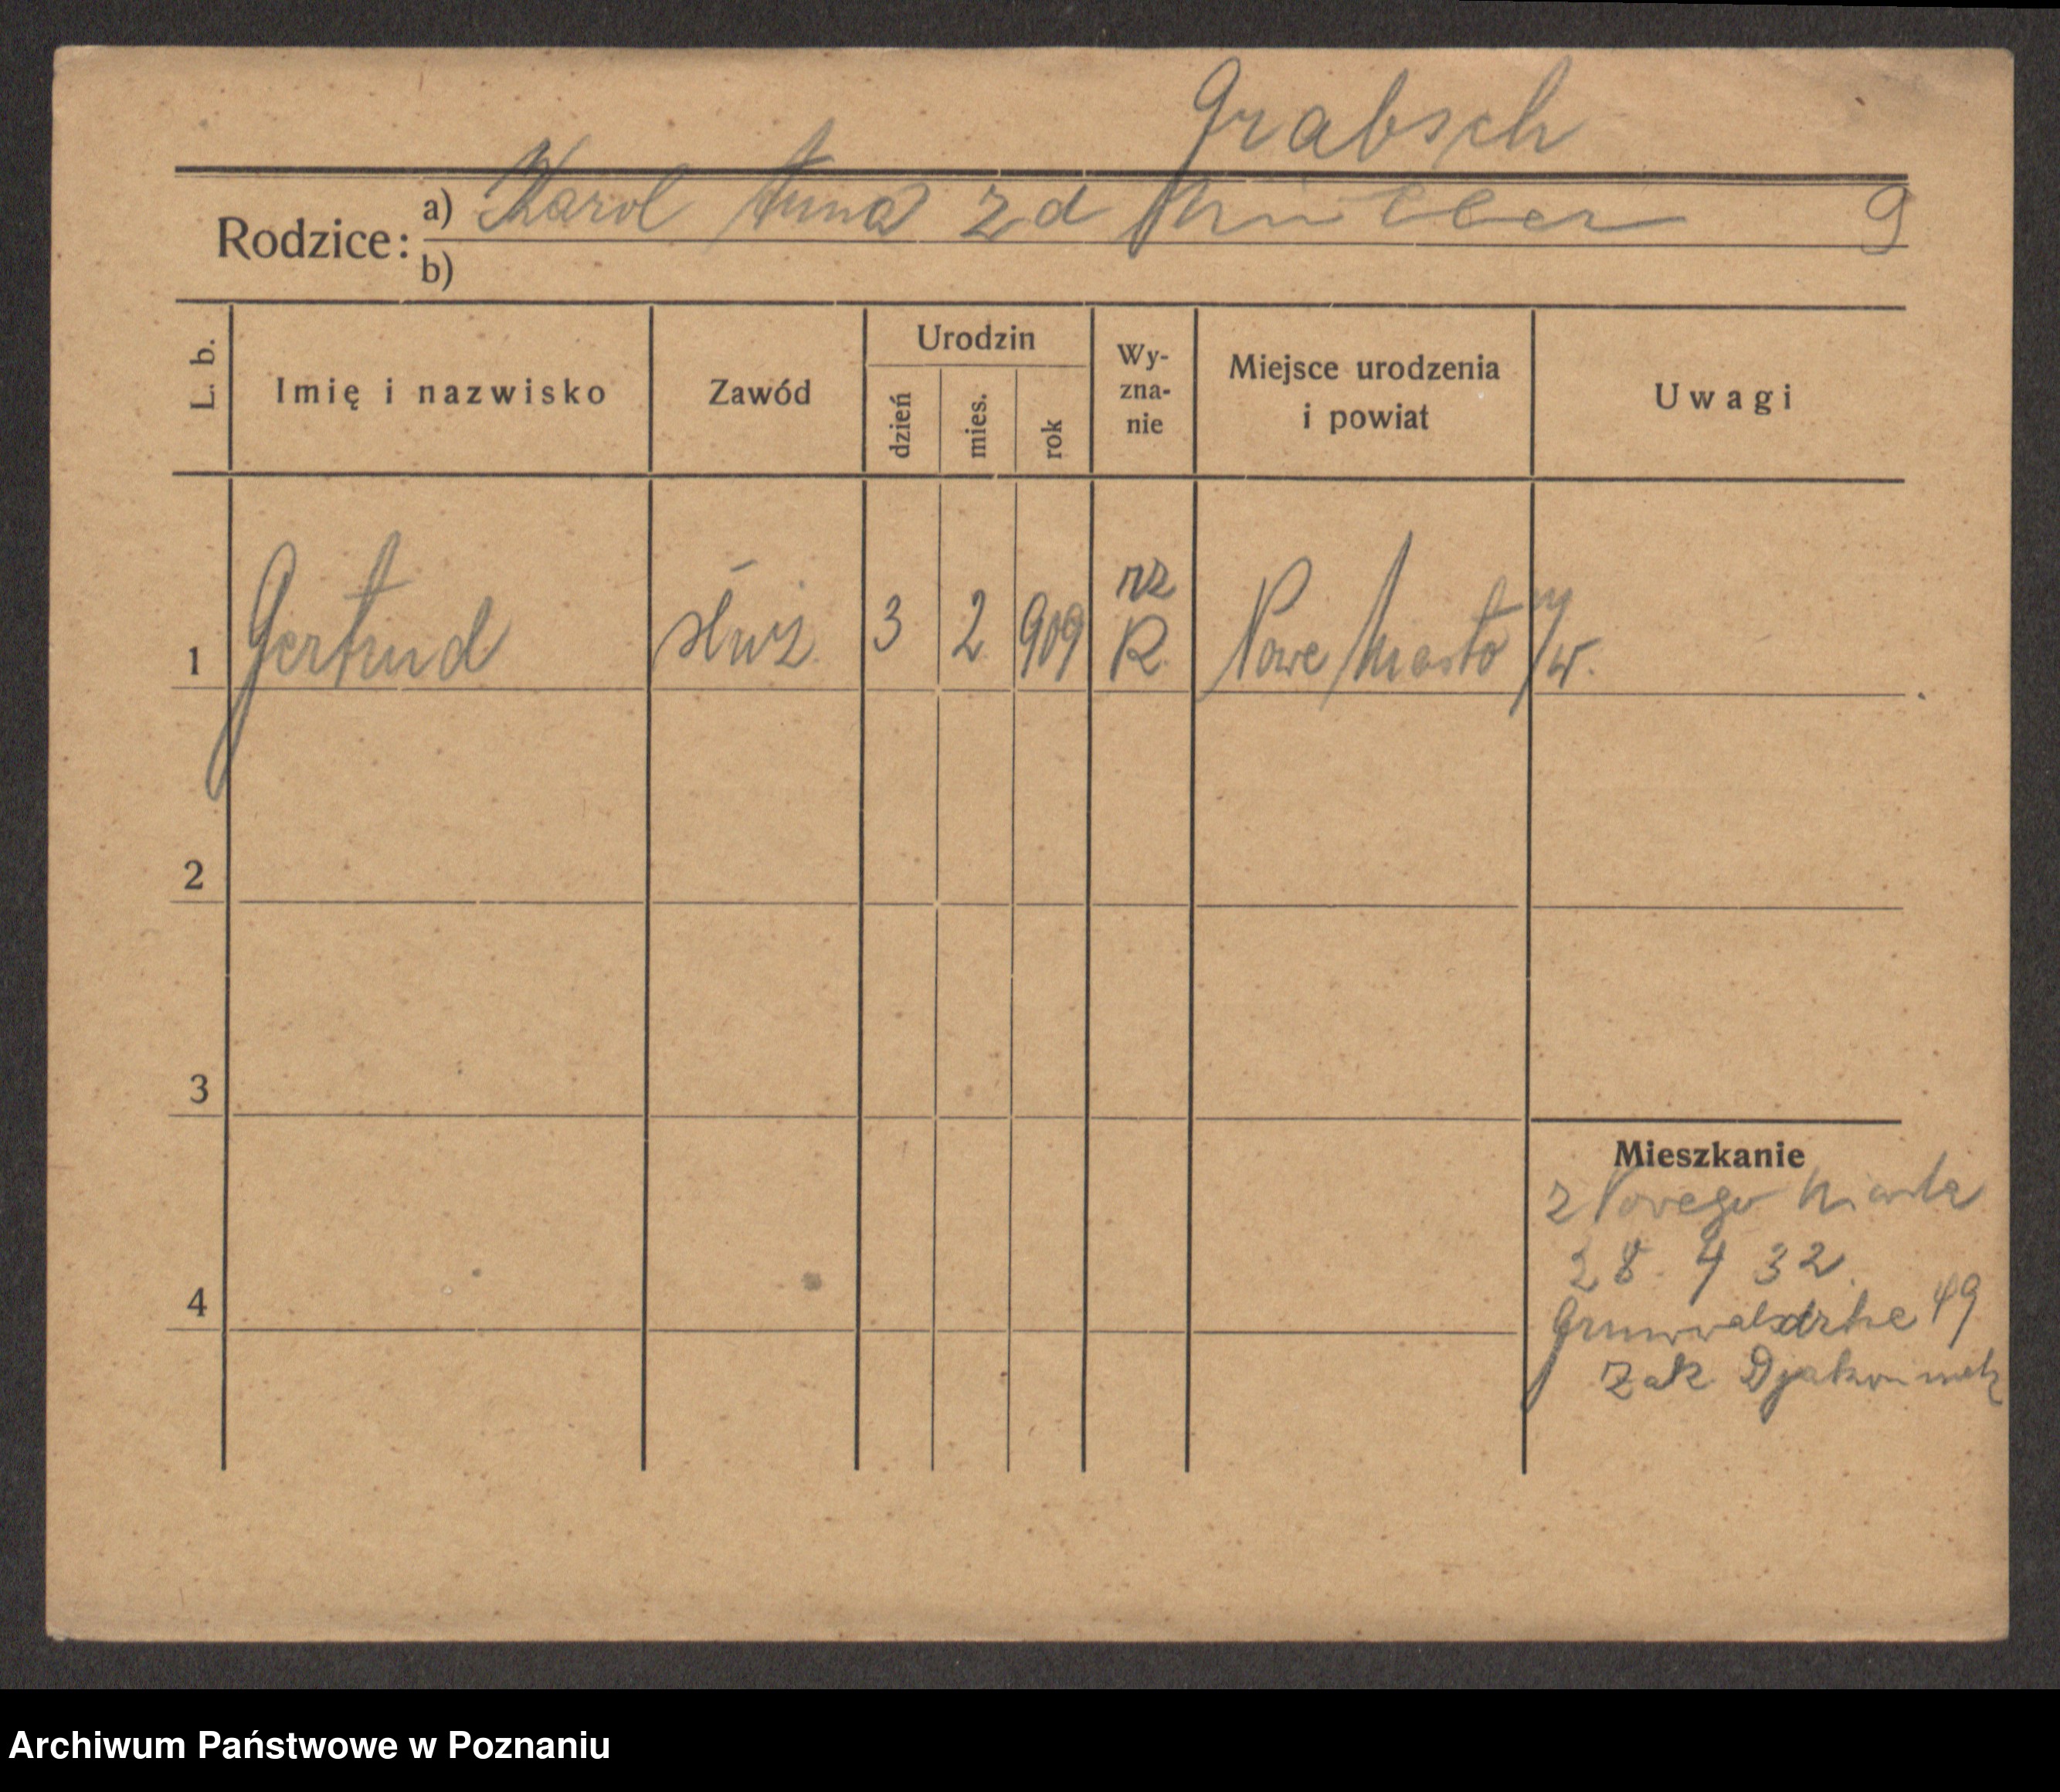 Grabsch
Rodzice: a) Karol Anna z d Müller 9
b)
L. b. Imię i nazwisko Zawód Urodzin dzień mies. rok Wy-zna-nie Miejsce urodzenia i powiat Uwagi
1 Gertrud służ 3 2 909 rz R. Nowe Miasto n/W.
2
3
Mieszkanie
z Nowego Miasta
28. 4 32.
4
Grunwaldzka 49
Zak
Archiwum Państwowe w Poznaniu